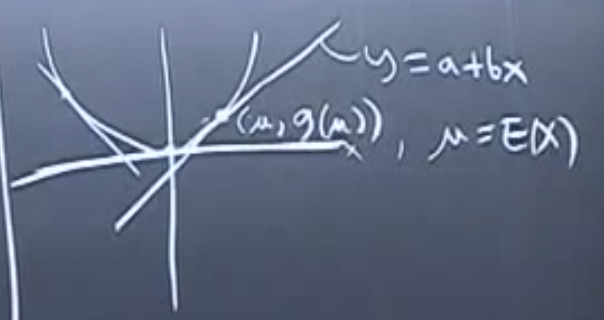 y=a+bx
(μ, g(μ)), μ=E(X)
x